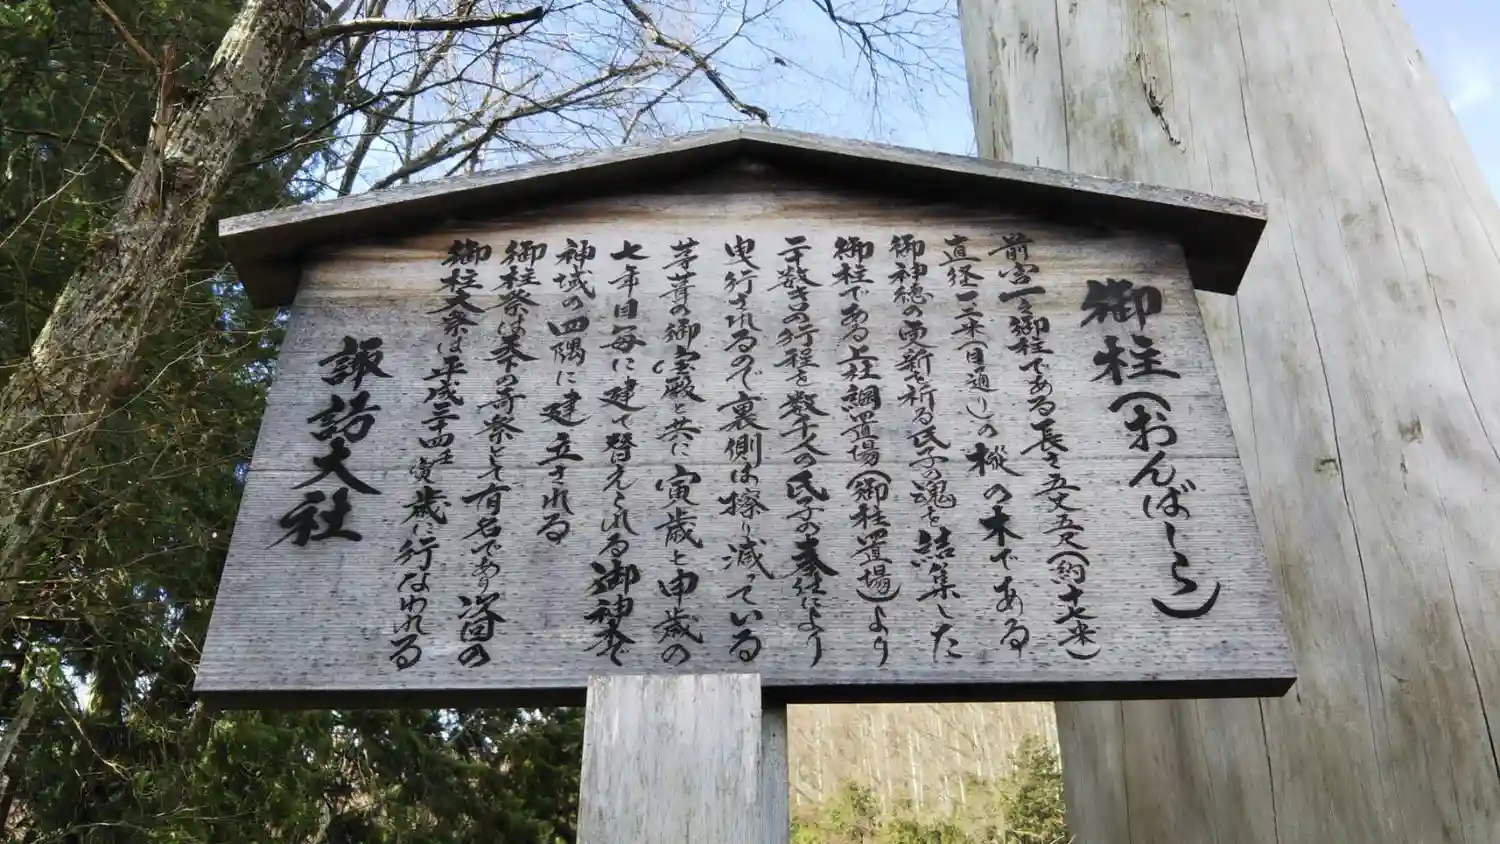 御柱(おんばしら)
前宮一之御柱である長さ五丈五尺(約十七米)
直径一三米(目通り)の樅の木である
御神徳の更新を祈る氏子の魂を結集した
御柱である上社綱置場(御柱置場)より
二十数キロの行程を数千人の氏子の奉仕により
曳行されるので裏側は擦り減っている
茅葺の御宝殿と共に寅歳と申歳の
七年目毎に建て替えられる御神木で
神域の四隅に建立される
御柱祭は天下の奇祭として有名であり次回の
御柱大祭は平成三十四壬寅歳に行なわれる
諏訪大社